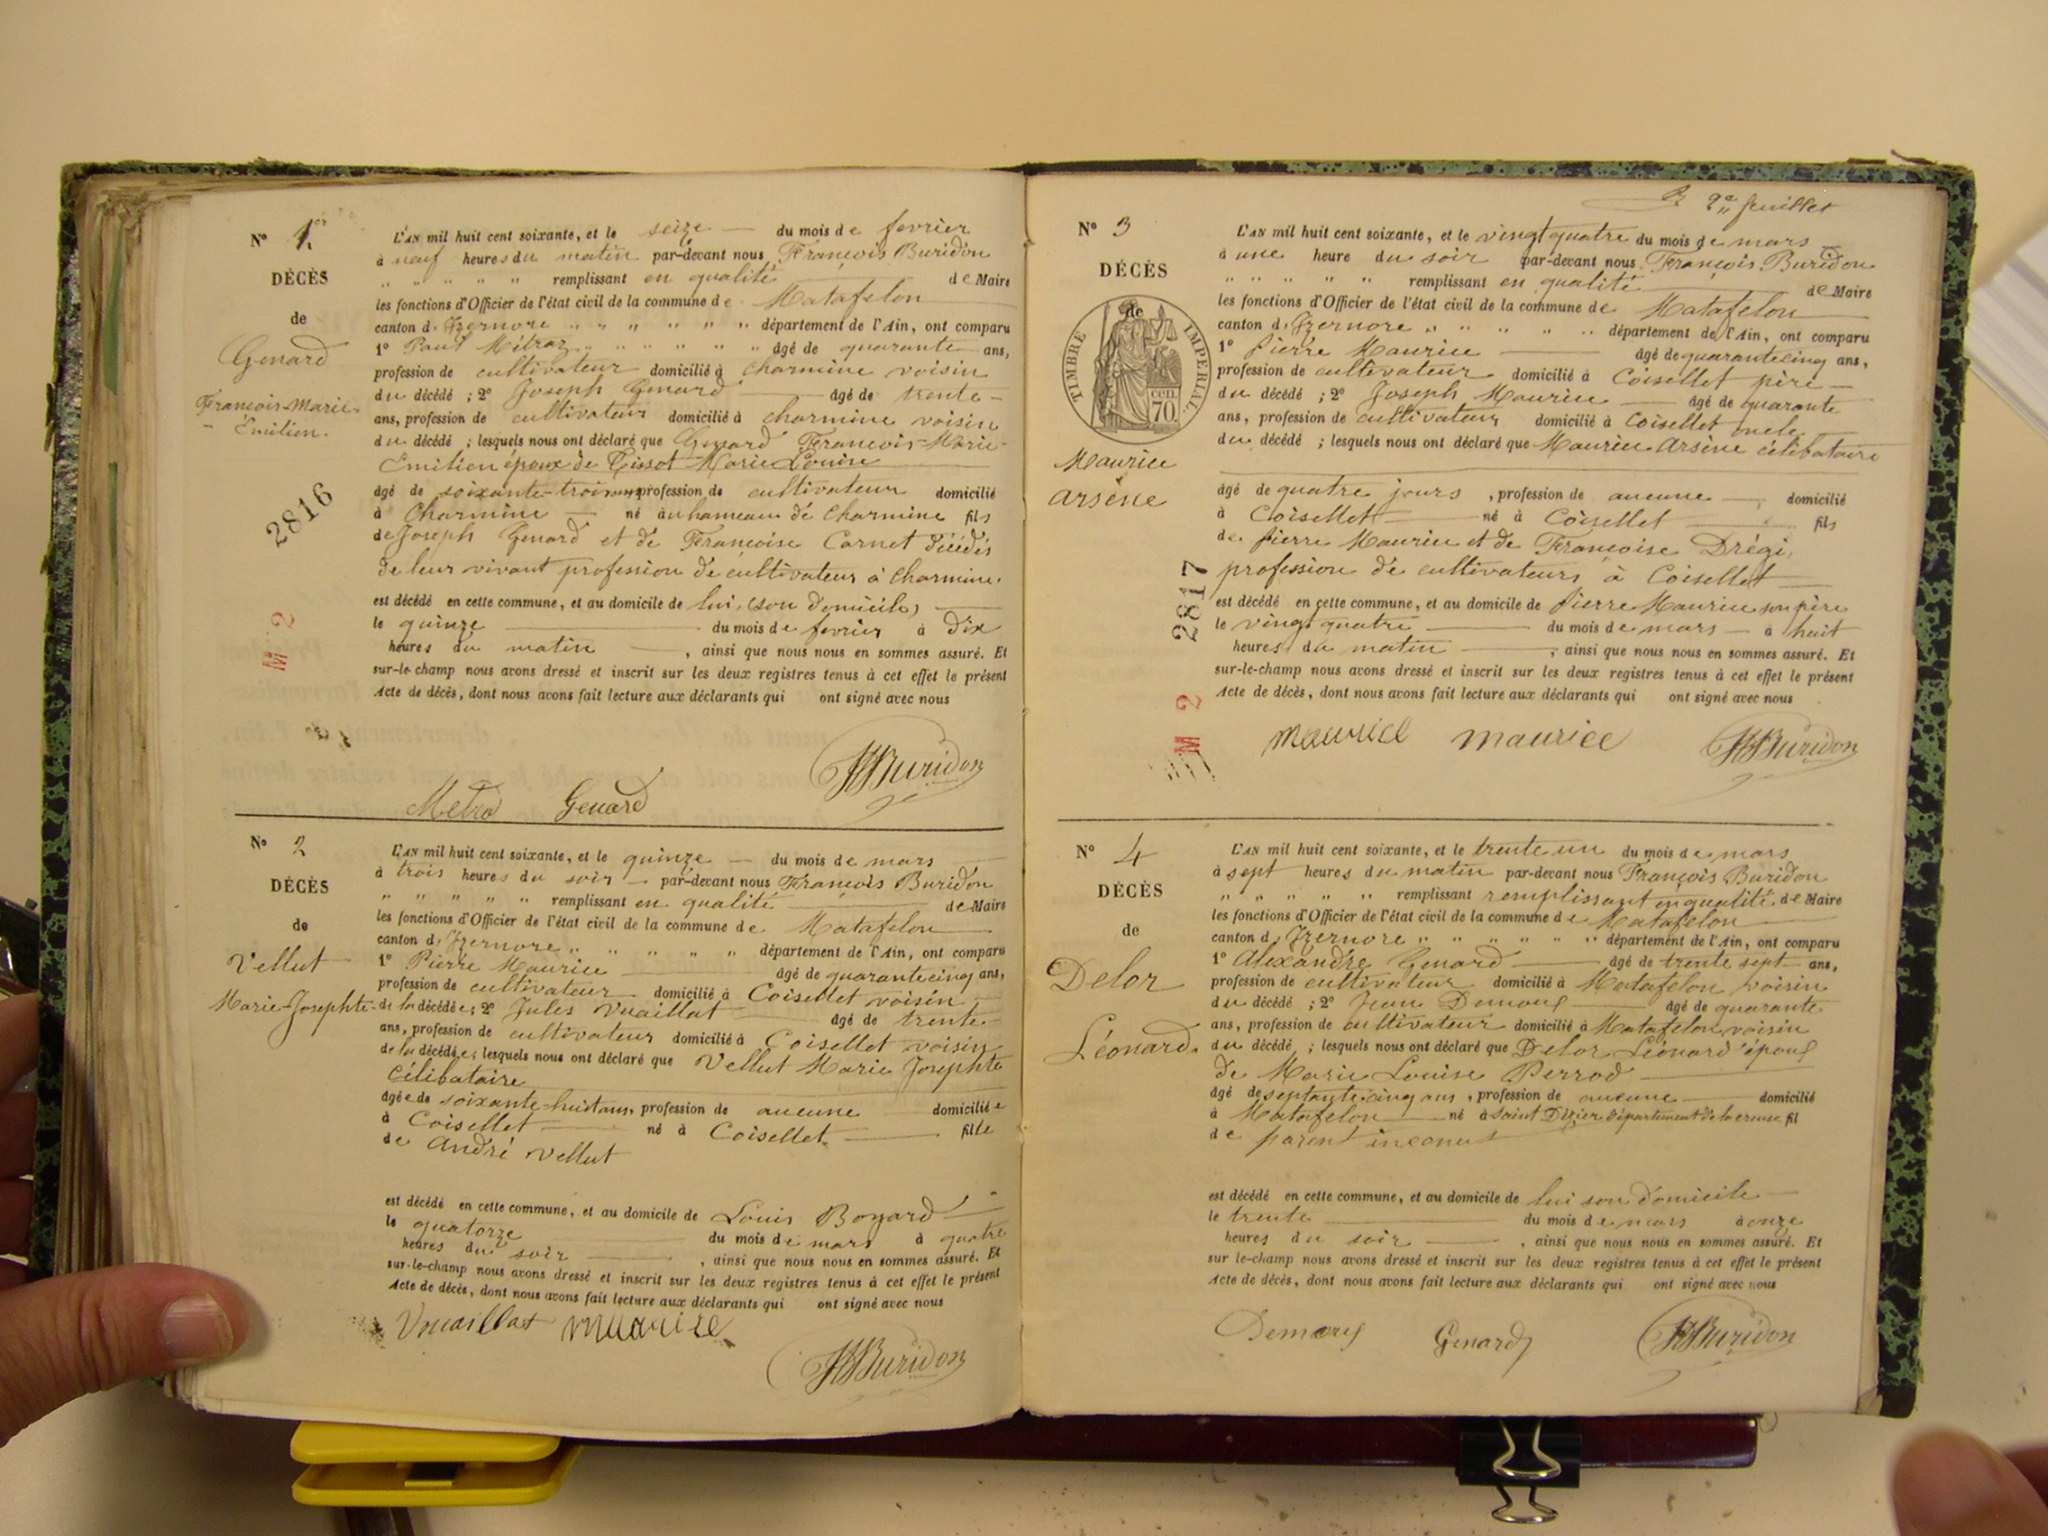 N° 1er
DÉCÈS
de
Genard
François-Marie-
Emilien.
2816
M 2
L'AN mil huit cent soixante, et le seize du mois de fevrier
à neuf heures du matin par-devant nous François Buridon
" " " " " remplissant en qualité de Maire
les fonctions d'Officier de l'état civil de la commune de Matafelon
canton d'Izernore " " " " " " " département de l'Ain, ont comparu
1° Paul Métraz " " " " " " âgé de quarante ans,
profession de cultivateur domicilié à Charmine voisin
du décédé ; 2° Joseph Genard âgé de trente-
ans, profession de cultivateur domicilié à charmine voisin
du décédé ; lesquels nous ont déclaré que Genard François-Marie-
Emilien époux de Tissot Marie Louise
âgé de soixante-trois ans, profession de cultivateur domicilié
à Charmine né au hameau de Charmine fils
de Joseph Genard et de Françoise Carnet décédés
de leur vivant profession de cultivateurs à charmine.
est décédé en cette commune, et au domicile de lui, (son domicile)
le quinze du mois de fevrier à dix
heures du matin , ainsi que nous nous en sommes assuré. Et
sur-le-champ nous avons dressé et inscrit sur les deux registres tenus à cet effet le présent
Acte de décès, dont nous avons fait lecture aux déclarants qui ont signé avec nous
Buridon
Metra Genard
N° 2
DÉCÈS
de
Vellut
Marie-Josephte
L'AN mil huit cent soixante, et le quinze du mois de mars
à trois heures du soir par-devant nous François Buridon
" " " " " remplissant en qualité de Maire
les fonctions d'Officier de l'état civil de la commune de Matafelon
canton d'Izernore " " " " " " département de l'Ain, ont comparu
1° Pierre Maurice âgé de quarante cinq ans,
profession de cultivateur domicilié à Coisellet voisin
de la décédée ; 2° Jules Vuaillat âgé de trente
ans, profession de cultivateur domicilié à Coisellet voisin
de la décédée ; lesquels nous ont déclaré que Vellut Marie Josephte
célibataire
âgée de soixante-huit ans, profession de aucune domiciliée
à Coisellet né à Coisellet fille
de André Vellut
est décédé en cette commune, et au domicile de Louis Bonard
le quatorze du mois de mars à quatre
heures du soir , ainsi que nous nous en sommes assuré. Et
sur-le-champ nous avons dressé et inscrit sur les deux registres tenus à cet effet le présent
Acte de décès, dont nous avons fait lecture aux déclarants qui ont signé avec nous
Vouaillat maurice
Buridon
2e feuillet
N° 3
DÉCÈS
de
TIMBRE IMPERIAL.
70 CEN.
Maurice
Arsène
2817
M 2
L'AN mil huit cent soixante, et le vingt quatre du mois de mars
à une heure du soir par-devant nous François Buridon
" " " " " remplissant en qualité de Maire
les fonctions d'Officier de l'état civil de la commune de Matafelon
canton d'Izernore " " " " " département de l'Ain, ont comparu
1° pierre Maurice âgé de quarante cinq ans,
profession de cultivateur domicilié à Coisellet père
du décédé ; 2° Joseph Maurice âgé de quarante
ans, profession de cultivateur domicilié à Coisellet oncle
du décédé ; lesquels nous ont déclaré que Maurice Arsène célibataire
âgé de quatre jours , profession de aucune domicilié
à Coisellet né à Coisellet fils
de pierre Maurice et de Françoise Drégi,
profession de cultivateurs à Coisellet
est décédé en cette commune, et au domicile de pierre Maurice son père
le vingt quatre du mois de mars à huit
heures du matin , ainsi que nous nous en sommes assuré. Et
sur-le-champ nous avons dressé et inscrit sur les deux registres tenus à cet effet le présent
Acte de décès, dont nous avons fait lecture aux déclarants qui ont signé avec nous
maurice maurice Buridon
N° 4
DÉCÈS
de
Delor
Léonard.
L'AN mil huit cent soixante, et le trente un du mois de mars
à sept heures du matin par-devant nous François Buridon
" " " " " remplissant remplissant en qualité de Maire
les fonctions d'Officier de l'état civil de la commune de Matafelon
canton d'Izernore " " " " " " département de l'Ain, ont comparu
1° Alexandre Genard âgé de trente sept ans,
profession de cultivateur domicilié à Matafelon voisin
du décédé ; 2° Jean âgé de quarante
ans, profession de cultivateur domicilié à Matafelon voisin
du décédé ; lesquels nous ont déclaré que Delor Léonard époux
de Marie Louise Perrod
âgé de septante-cinq ans , profession de aucune domicilié
à Matafelon né à saint Dizier département de la creuse fil
de parent inconnus
est décédé en cette commune, et au domicile de lui son domicile
le trente du mois de mars à onze
heures du soir , ainsi que nous nous en sommes assuré. Et
sur le-champ nous avons dressé et inscrit sur les deux registres tenus à cet effet le présent
Acte de décès, dont nous avons fait lecture aux déclarants qui ont signé avec nous
Genard Buridon